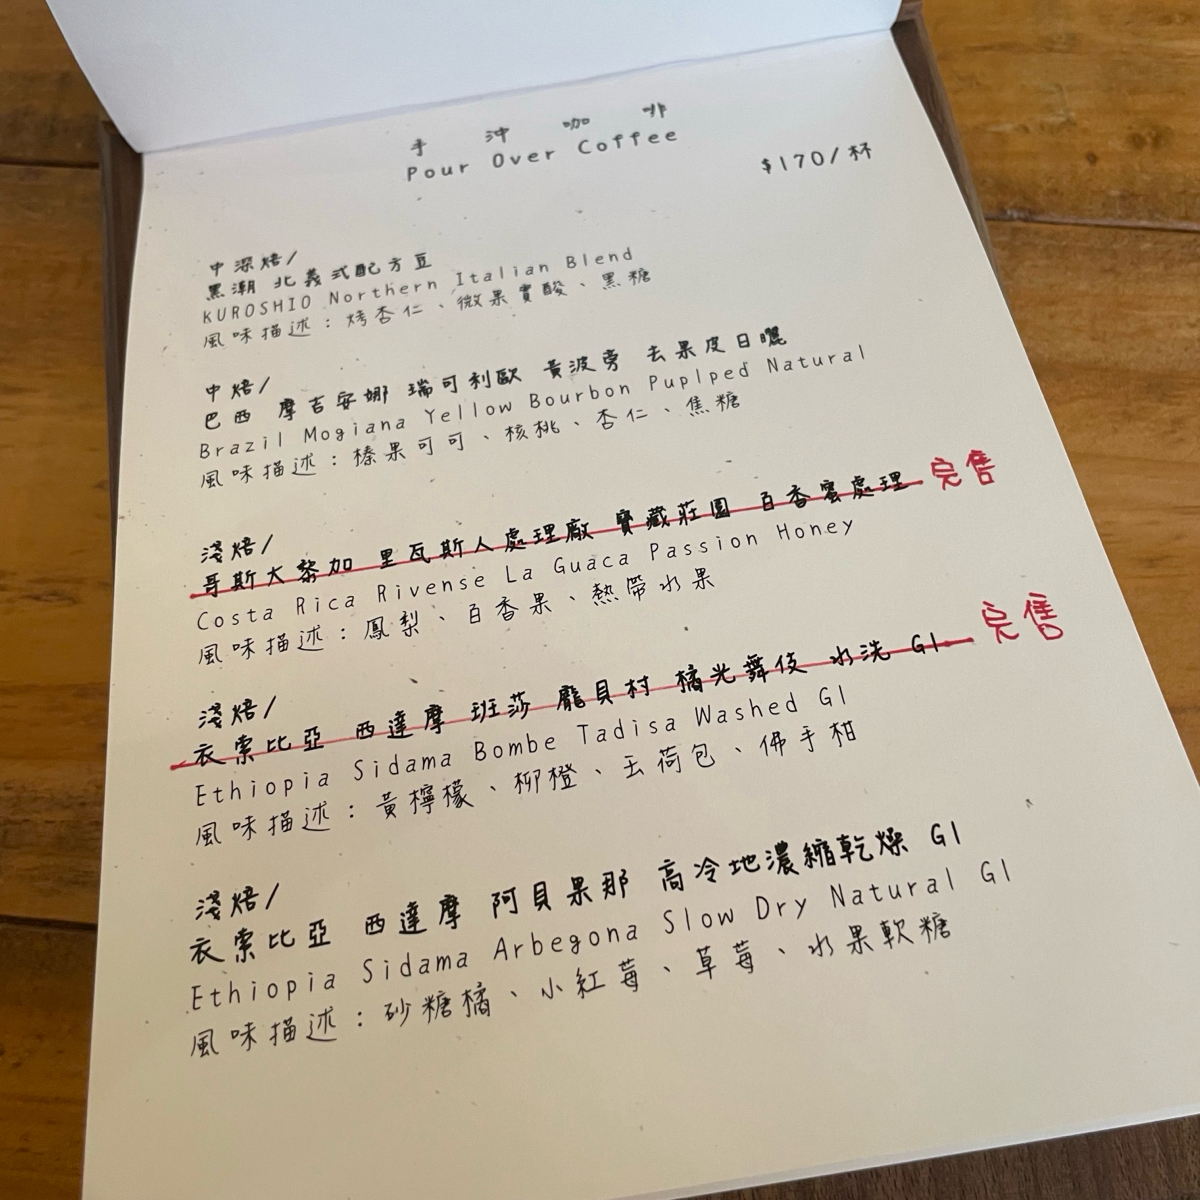 手沖咖啡
Pour Over Coffee
$170/杯
中深焙/
黑潮 北義式配方豆
KUROSHIO Northern Italian Blend
風味描述:烤杏仁、微果實酸、黑糖
中焙/
巴西 摩吉安娜 瑞可利歐 黃波旁 去果皮日曬
Brazil Mogiana Yellow Bourbon Puplped Natural
風味描述:榛果可可、核桃、杏仁、焦糖
淺焙/
哥斯大黎加 里瓦斯人處理廠 寶藏莊園 百香蜜處理 完售
Costa Rica Rivense La Guaca Passion Honey
風味描述:鳳梨、百香果、熱帶水果
淺焙/
衣索比亞 西達摩 班莎 龐貝村 橘光舞伎 水洗 G1 完售
Ethiopia Sidama Bombe Tadisa Washed G1
風味描述:黃檸檬、柳橙、玉荷包、佛手柑
淺焙/
衣索比亞 西達摩 阿貝果那 高冷地濃縮乾燥 G1
Ethiopia Sidama Arbegona Slow Dry Natural G1
風味描述:砂糖橘、小紅莓、草莓、水果軟糖